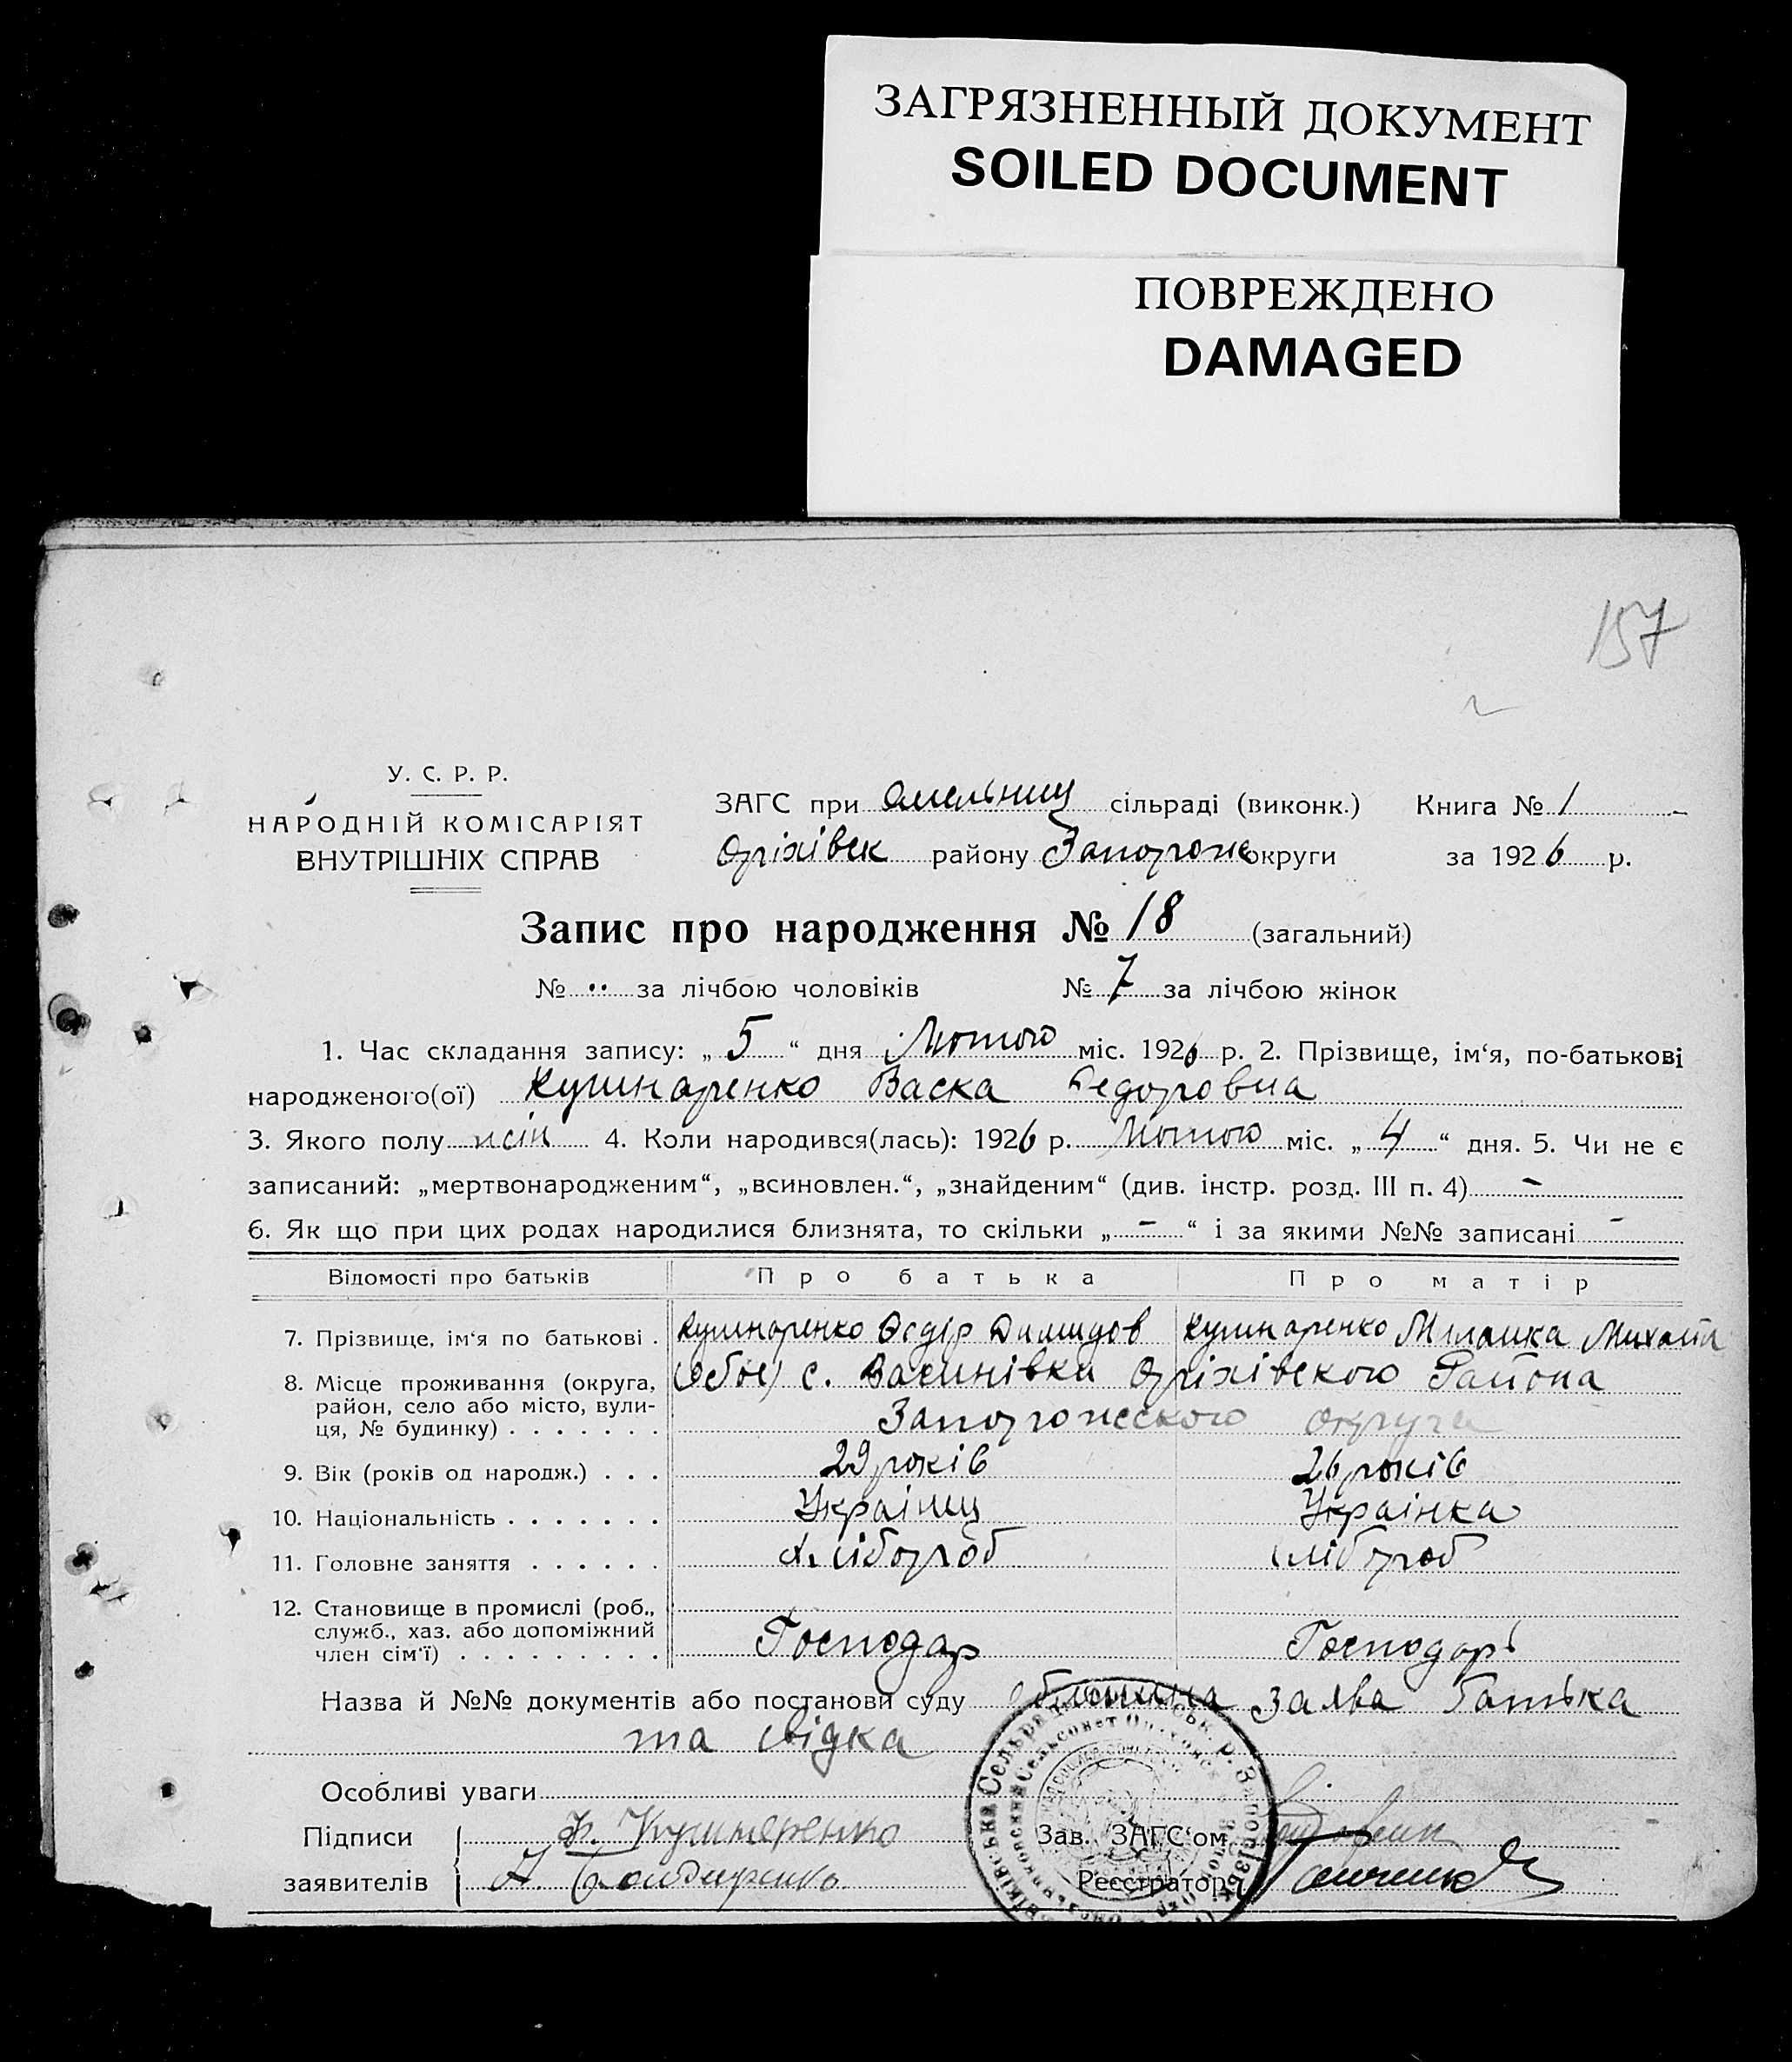 ЗАГРЯЗНЕННЫЙ ДОКУМЕНТ
SOILED DOCUMENT
ПОВРЕЖДЕНО
DAMAGED
157
У. С. Р. Р.
НАРОДНІЙ КОМІСАРІЯТ
ВНУТРІШНІХ СПРАВ
ЗАГС при Омельниц сільраді (виконк.) Книга № 1
Оріхівск району Запорожс округи за 1926 р.
Запис про народження № 18 (загальний)
№ .. за лічбою чоловіків № 7 за лічбою жінок
1. Час складання запису: „ 5 “ дня Лютого міс. 1926 р. 2. Прізвище, ім‘я, по-батькові
народженого(ої) Кушнаренко Васка Федоровна
3. Якого полу жін 4. Коли народився(лась): 1926 р. Лютого міс. „ 4 “ дня. 5. Чи не є
записаний: „мертвонародженим“, „всиновлен.“, „знайденим“ (див. інстр. розд. III п. 4) -
6. Як що при цих родах народилися близнята, то скільки „ - “ і за якими №№ записані -
Відомості про батьків Про батька Про матір
7. Прізвище, ім‘я по батькові . Кушнаренко Федір Димидов Кушнаренко Миланка Михайл
8. Місце проживання (округа, район, село або місто, вулиця, № будинку) . . . . . . . (обоє) с. Васинівки Оріхівского Района
Запорожского округа
9. Вік (років од народж.) . . . 29 років 26 років
10. Національність . . . . . . . Украінц Украінка
11. Головне заняття . . . . . . Хлібороб хлібороб
12. Становище в промислі (роб., служб., хаз. або допоміжний член сім‘ї) . . . . . . . . . Господар Господарь
Назва й №№ документів або постанови суду заява батька
та свідка
Особливі уваги
Підписи Ф. Кушнеренко Зав. ЗАГС‘ом
заявителів А. Бондаренко Реєстратор